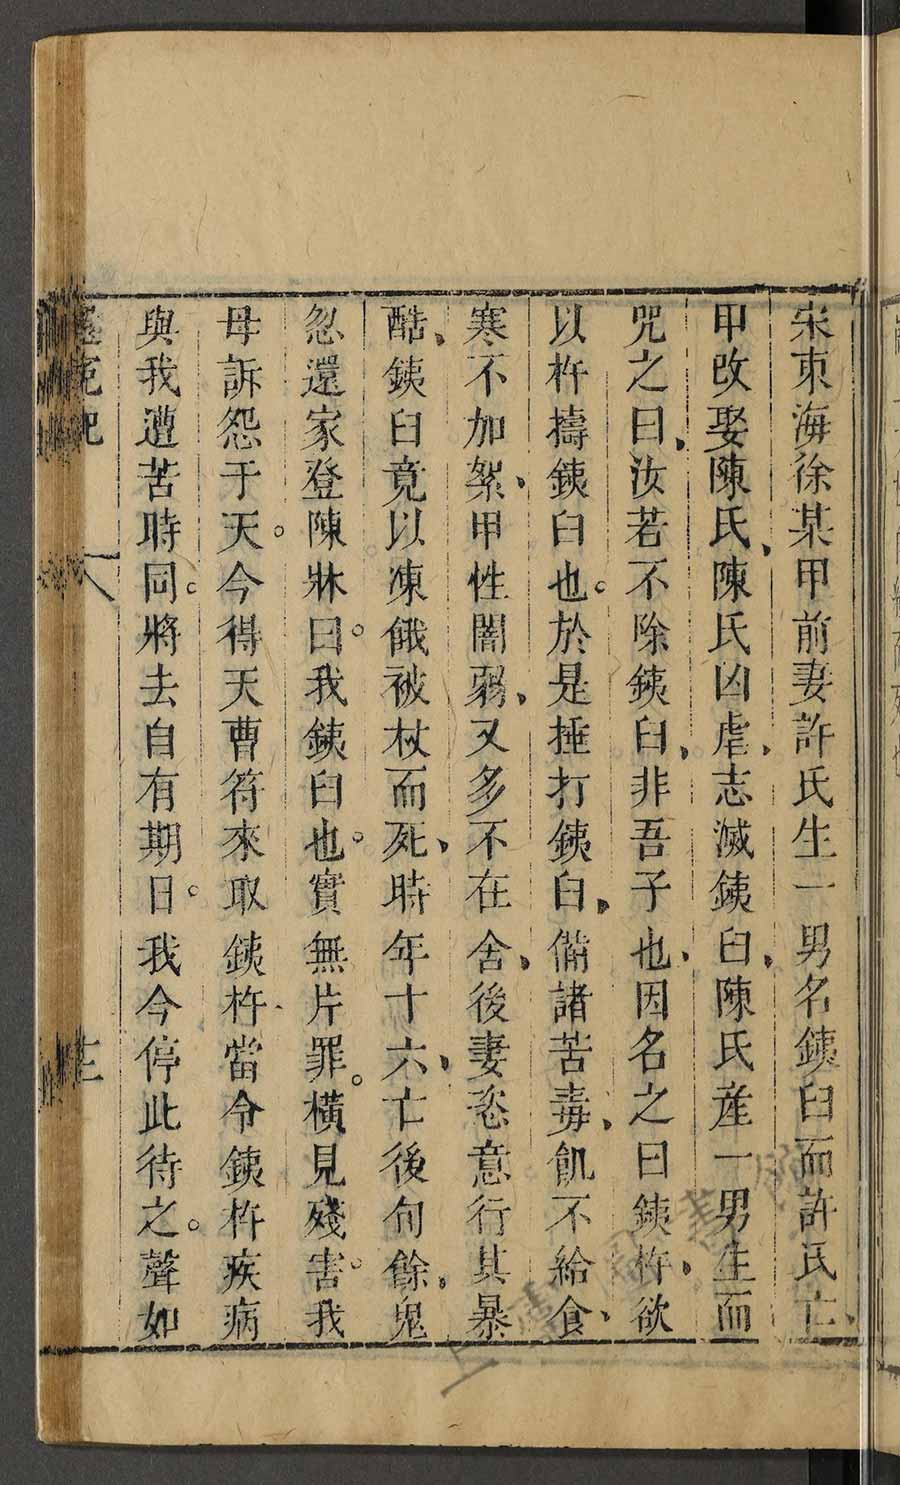 宋東海徐某甲前妻許氏生一男名銕臼而許氏亡、
甲改娶陳氏、陳氏凶虐、志滅銕臼、陳氏產一男生而
咒之曰、汝若不除銕臼、非吾子也、因名之曰銕杵、欲
以杵擣銕臼也。於是捶打銕臼、備諸苦毒、飢不給食、
寒不加絮、甲性闇弱、又多不在舍、後妻恣意行其暴
酷、銕臼竟以凍餓被杖而死、時年十六、亡後旬餘、鬼
忽還家登陳牀曰。我銕臼也。實無片罪。橫見殘害。我
母訴怨于天。今得天曹符來取銕杵、當令銕杵疾病
與我遭苦時同。將去自有期日。我今停此待之。聲如
還冤記